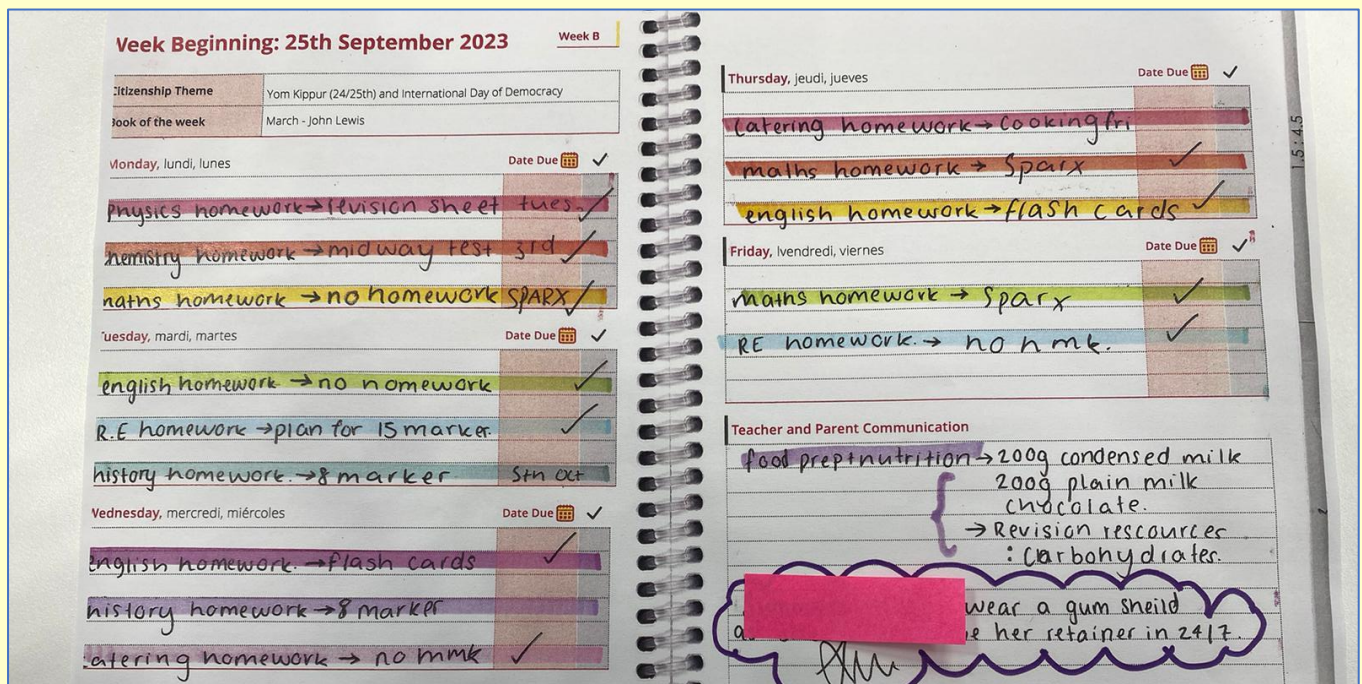 Week Beginning: 25th September 2023 Week B
Citizenship Theme Yom Kippur (24/25th) and International Day of Democracy
Book of the week March - John Lewis
Monday, lundi, lunes Date Due ✓
Physics homework→revision sheet tues. ✓
hemistry homework →midway test 3rd ✓
maths homework →no homework SPARX ✓
Tuesday, mardi, martes Date Due ✓
english homework →no nomework ✓
R.E homework →plan for 15 marker. ✓
history homework.→8 marker 5th Oct
Wednesday, mercredi, miércoles Date Due ✓
english homework.→flash cards ✓
history homework→8 marker
catering homework → no mmk ✓
Thursday, jeudi, jueves Date Due ✓
Catering homework→Cooking fri
maths homework → Sparx ✓
english homework→flash cards ✓
Friday, lvendredi, viernes Date Due ✓
maths homework → Sparx ✓
RE homework.→ no nmk. ✓
Teacher and Parent Communication
food prep+nutrition→200g condensed milk
200g plain milk
chocolate.
→Revision rescources
:Carbohydrates.
wear a gum sheild
her retainer in 24/7.
15:45